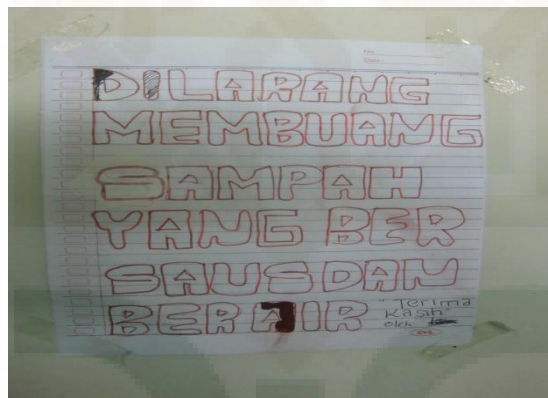 DILARANG
MEMBUANG
SAMPAH
YANG BER
SAUS DAN
BERAIR
"Terima
Kasih"
oleh